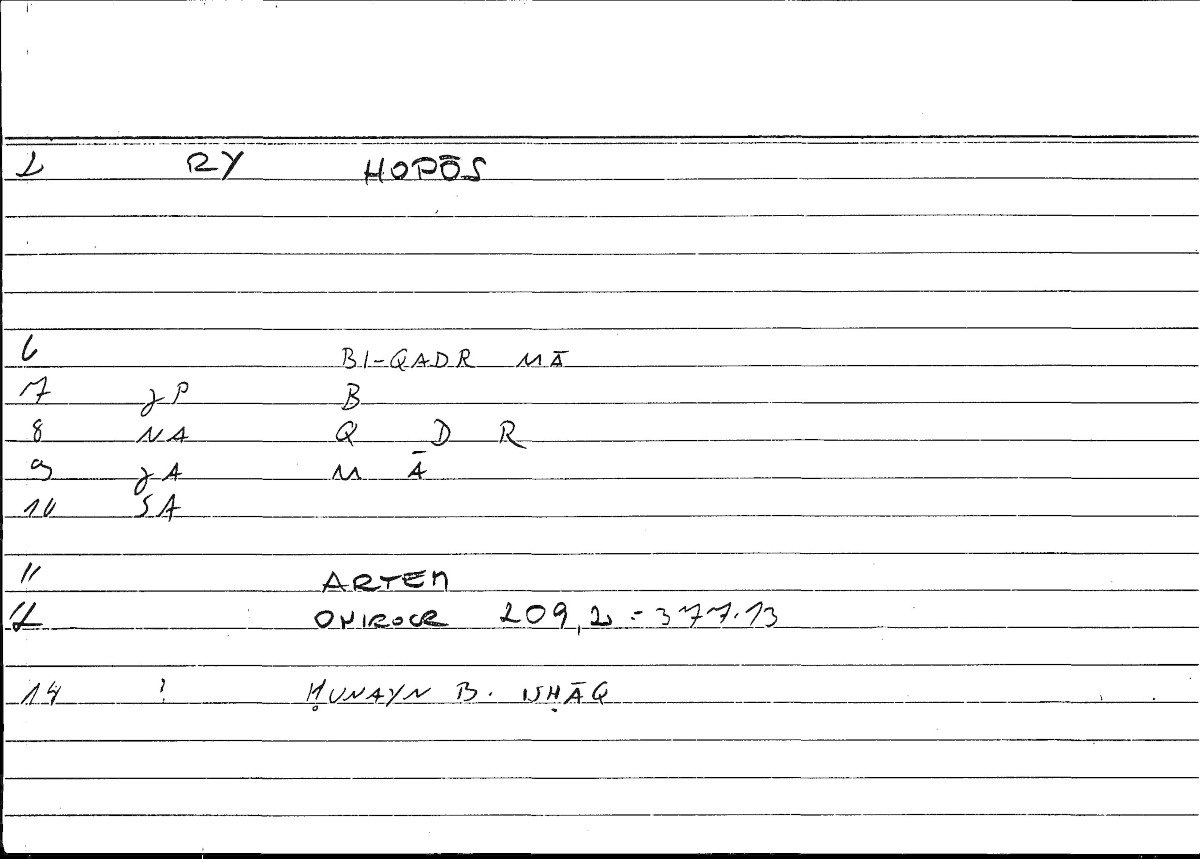 2 RY HOPŌS
6 BI-QADR MĀ
7 gP B
8 NA Q D R
9 gA M Ā
10 SA
11 ARTEM
12 ONIROCR 209,2 = 377.13
14 ! ḤUNAYN B. ISḤĀQ